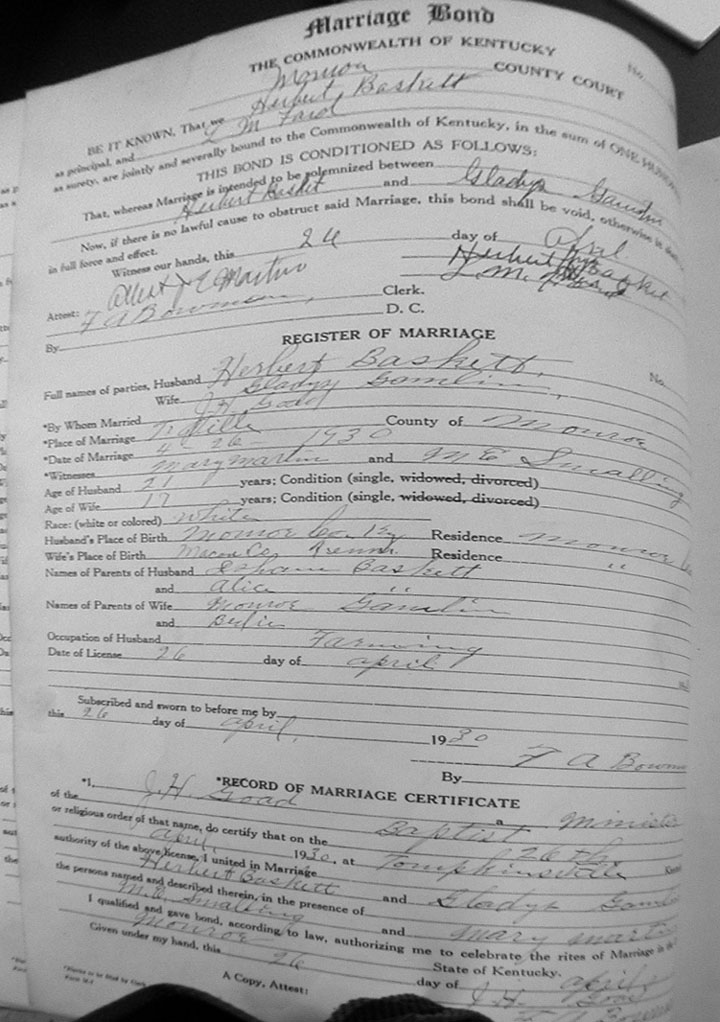 Marriage Bond
THE COMMONWEALTH OF KENTUCKY
No.
Monroe COUNTY COURT
BE IT KNOWN, That we Herbert Baskett
as principal, and L M Ford
as surety, are jointly and severally bound to the Commonwealth of Kentucky, in the sum of ONE HUNDR
THIS BOND IS CONDITIONED AS FOLLOWS:
That, whereas Marriage is intended to be solemnized between
Herbert Basket and Gladys Gamlin
Now, if there is no lawful cause to obstruct said Marriage, this bond shall be void, otherwise
in full force and effect.
Witness our hands, this 26 day of April
Herbert Basket
Attest J E Martin L. M. Ford
Attest: F A Bowman, Clerk.
By D. C.
REGISTER OF MARRIAGE
No.
Full names of parties, Husband Herbert Baskett,
Wife Gladys Gamlin,
*By Whom Married J H Goad
*Place of Marriage T. Ville County of Monroe
*Date of Marriage 4 - 26 - 1930
*Witnesses Mary Martin and M E Smalling
Age of Husband 21 years; Condition (single, widowed, divorced)
Age of Wife 17 years; Condition (single, widowed, divorced)
Race: (white or colored) White
Husband's Place of Birth Monroe Co. Ky Residence Monroe Co
Wife's Place of Birth Macon Co Tenn. Residence "
Names of Parents of Husband Isham Baskett
and Alice "
Names of Parents of Wife Monroe Gamlin
and
Occupation of Husband Farming
Date of License 26 day of april
Subscribed and sworn to before me by
this 26 day of april, 1930
F A Bowm
By
*RECORD OF MARRIAGE CERTIFICATE
*I, J. H Goad a Minister
of the Baptist
or religious order of that name, do certify that on the 26 th
april 1930, at Tompkinsville Kent
authority of the above license, I united in Marriage
Herbert Baskett and Gladys Gamlin
the persons named and described therein, in the presence of
M.E. Smalling and Mary Martin
I qualified and gave bond, according to law, authorizing me to celebrate the rites of Marriage in the
Monroe State of Kentucky.
Given under my hand, this 26 day of april
J. H. Goad
A Copy, Attest: F A Bowm
*Blanks to be filled by Clerk